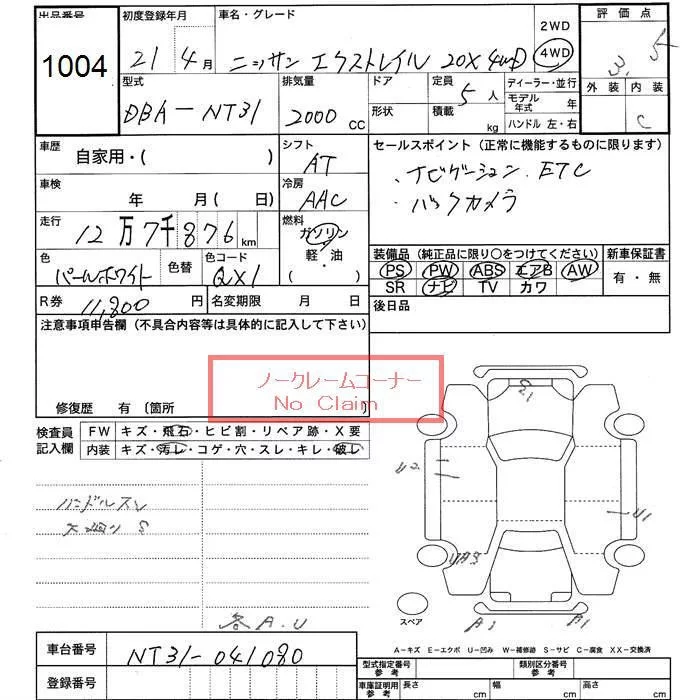 出品番号 初度登録年月 車名・グレード 2WD 評価点
1004 21年 4月 ニッサン エクストレイル 20X 4WD 4WD 3.5
型式 排気量 ドア 定員 ディーラー・並行 外装 内装
DBA-NT31 2000cc 形状 積載 kg 5人 モデル年式 年 C
ハンドル 左・右
車歴 自家用・( ) シフト AT セールスポイント (正常に機能するものに限ります)
車検 年 月( 日) 冷房 AAC ・ナビゲーション. ETC
・バックカメラ
走行 12万7千876km 燃料 ガソリン 軽・油 ( )
装備品 (純正品に限り○をつけてください) 新車保証書
色 パールホワイト 色替 色コード QX1 PS PW ABS エアB AW 有・無
SR ナビ TV カワ
R券 11,800円 名変期限 月 日 後日品
注意事項申告欄 (不具合内容等は具体的に記入して下さい)
ノークレームコーナー
No Claim
修復歴 有 〔箇所 〕
検査員記入欄 FW キズ・飛石・ヒビ割・リペア跡・X要
内装 キズ・汚レ・コゲ・穴・スレ・キレ・破レ
ハンドルスレ
S1
U2
U1
UA3
各A.U
スペア
A1
A-キズ E-エクボ U-凹み W-補修跡 S-サビ C-腐食 XX-交換済
車台番号 NT31-041080 型式指定番号 参考 類別区分番号 参考
登録番号 車庫証明用 参考 長さ cm 幅 cm 高さ cm